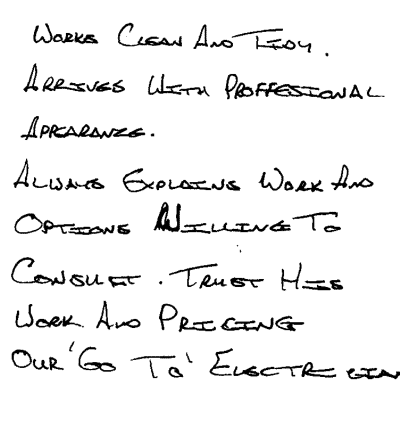 Works Clean And Tidy.
Arrives With Proffesional
Appearance.
Always Explains Work And
Options Willing To
Consult. Trust His
Work And Pricing
Our 'Go To' Electrician